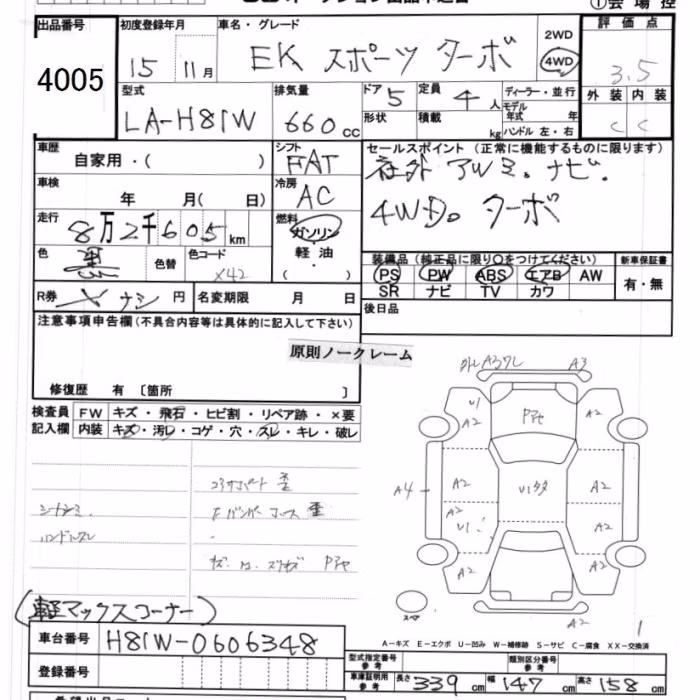 ①会場控
出品番号
4005
初度登録年月
15 11月
車名・グレード
EK スポーツ ターボ
2WD
4WD
評価点
3.5
外装 内装
C C
型式
LA-H81W
排気量
660cc
ドア 5
定員 4人
形状
積載 kg
ディーラー・並行
モデル
年式 年
ハンドル 左・右
車歴
自家用・( )
シフト
FAT
セールスポイント (正常に機能するものに限ります)
社外 AWミ。ナビ.
4WD。ターボ
車検
年 月( 日)
冷房
AC
走行
8万2千605km
燃料
ガソリン
・
軽油
・
( )
色
黒
色替
色コード
X42
装備品 (純正品に限り○をつけてください)
PS PW ABS エアB AW
SR ナビ TV カワ
新車保証書
有・無
R券
ナシ 円
名変期限 月 日
後日品
注意事項申告欄(不具合内容等は具体的に記入して下さい)
原則ノークレーム
修復歴 有 〔箇所 〕
検査員
記入欄
FW キズ・飛石・ヒビ割・リペア跡・×要
内装 キズ・汚レ・コゲ・穴・スレ・キレ・破レ
コアサポート 歪
シートシミ.
Fバンパーホース 歪
ハンドルスレ
A3
U1
A2
A2
A4
A2
A2
A2
A2
U1
A2
A2
A2
A2
スペア
1
(軽マックスコーナー)
A−キズ E−エクボ U−凹み W−補修跡 S−サビ C−腐食 XX−交換済
車台番号
H81W-0606348
登録番号
型式指定番号
参考
類別区分番号
参考
車庫証明用
参考
長さ 339cm 幅 147cm 高さ 158cm